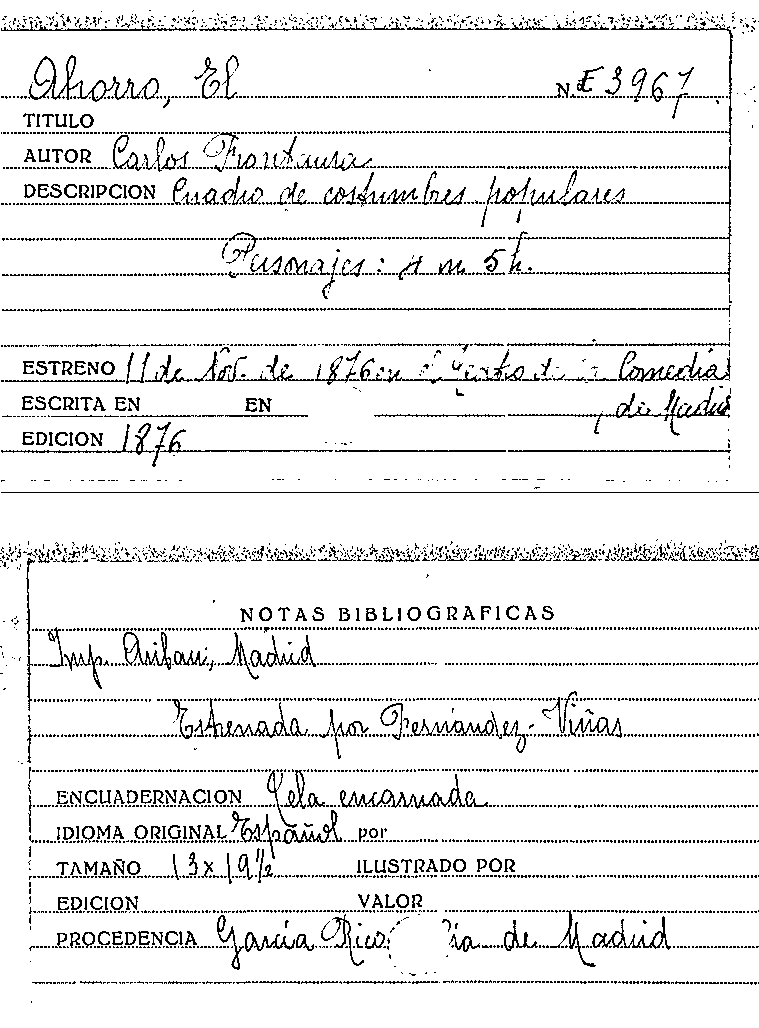 Ahorro, El N.E 3967
TITULO
AUTOR Carlos Frontaura
DESCRIPCION Cuadro de costumbres populares
Personajes: 4 m 5 h.
ESTRENO 11 de Nov. de 1876 en el Teatro de la Comedia
ESCRITA EN EN , de Madrid
EDICION 1876
NOTAS BIBLIOGRAFICAS
Imp. Aribau, Madrid
Estrenada por Fernández-Viñas
ENCUADERNACION Tela encarnada
IDIOMA ORIGINAL Español por
TAMAÑO 13 x 19 1/2 ILUSTRADO POR
EDICION VALOR
PROCEDENCIA García Rico de Madrid